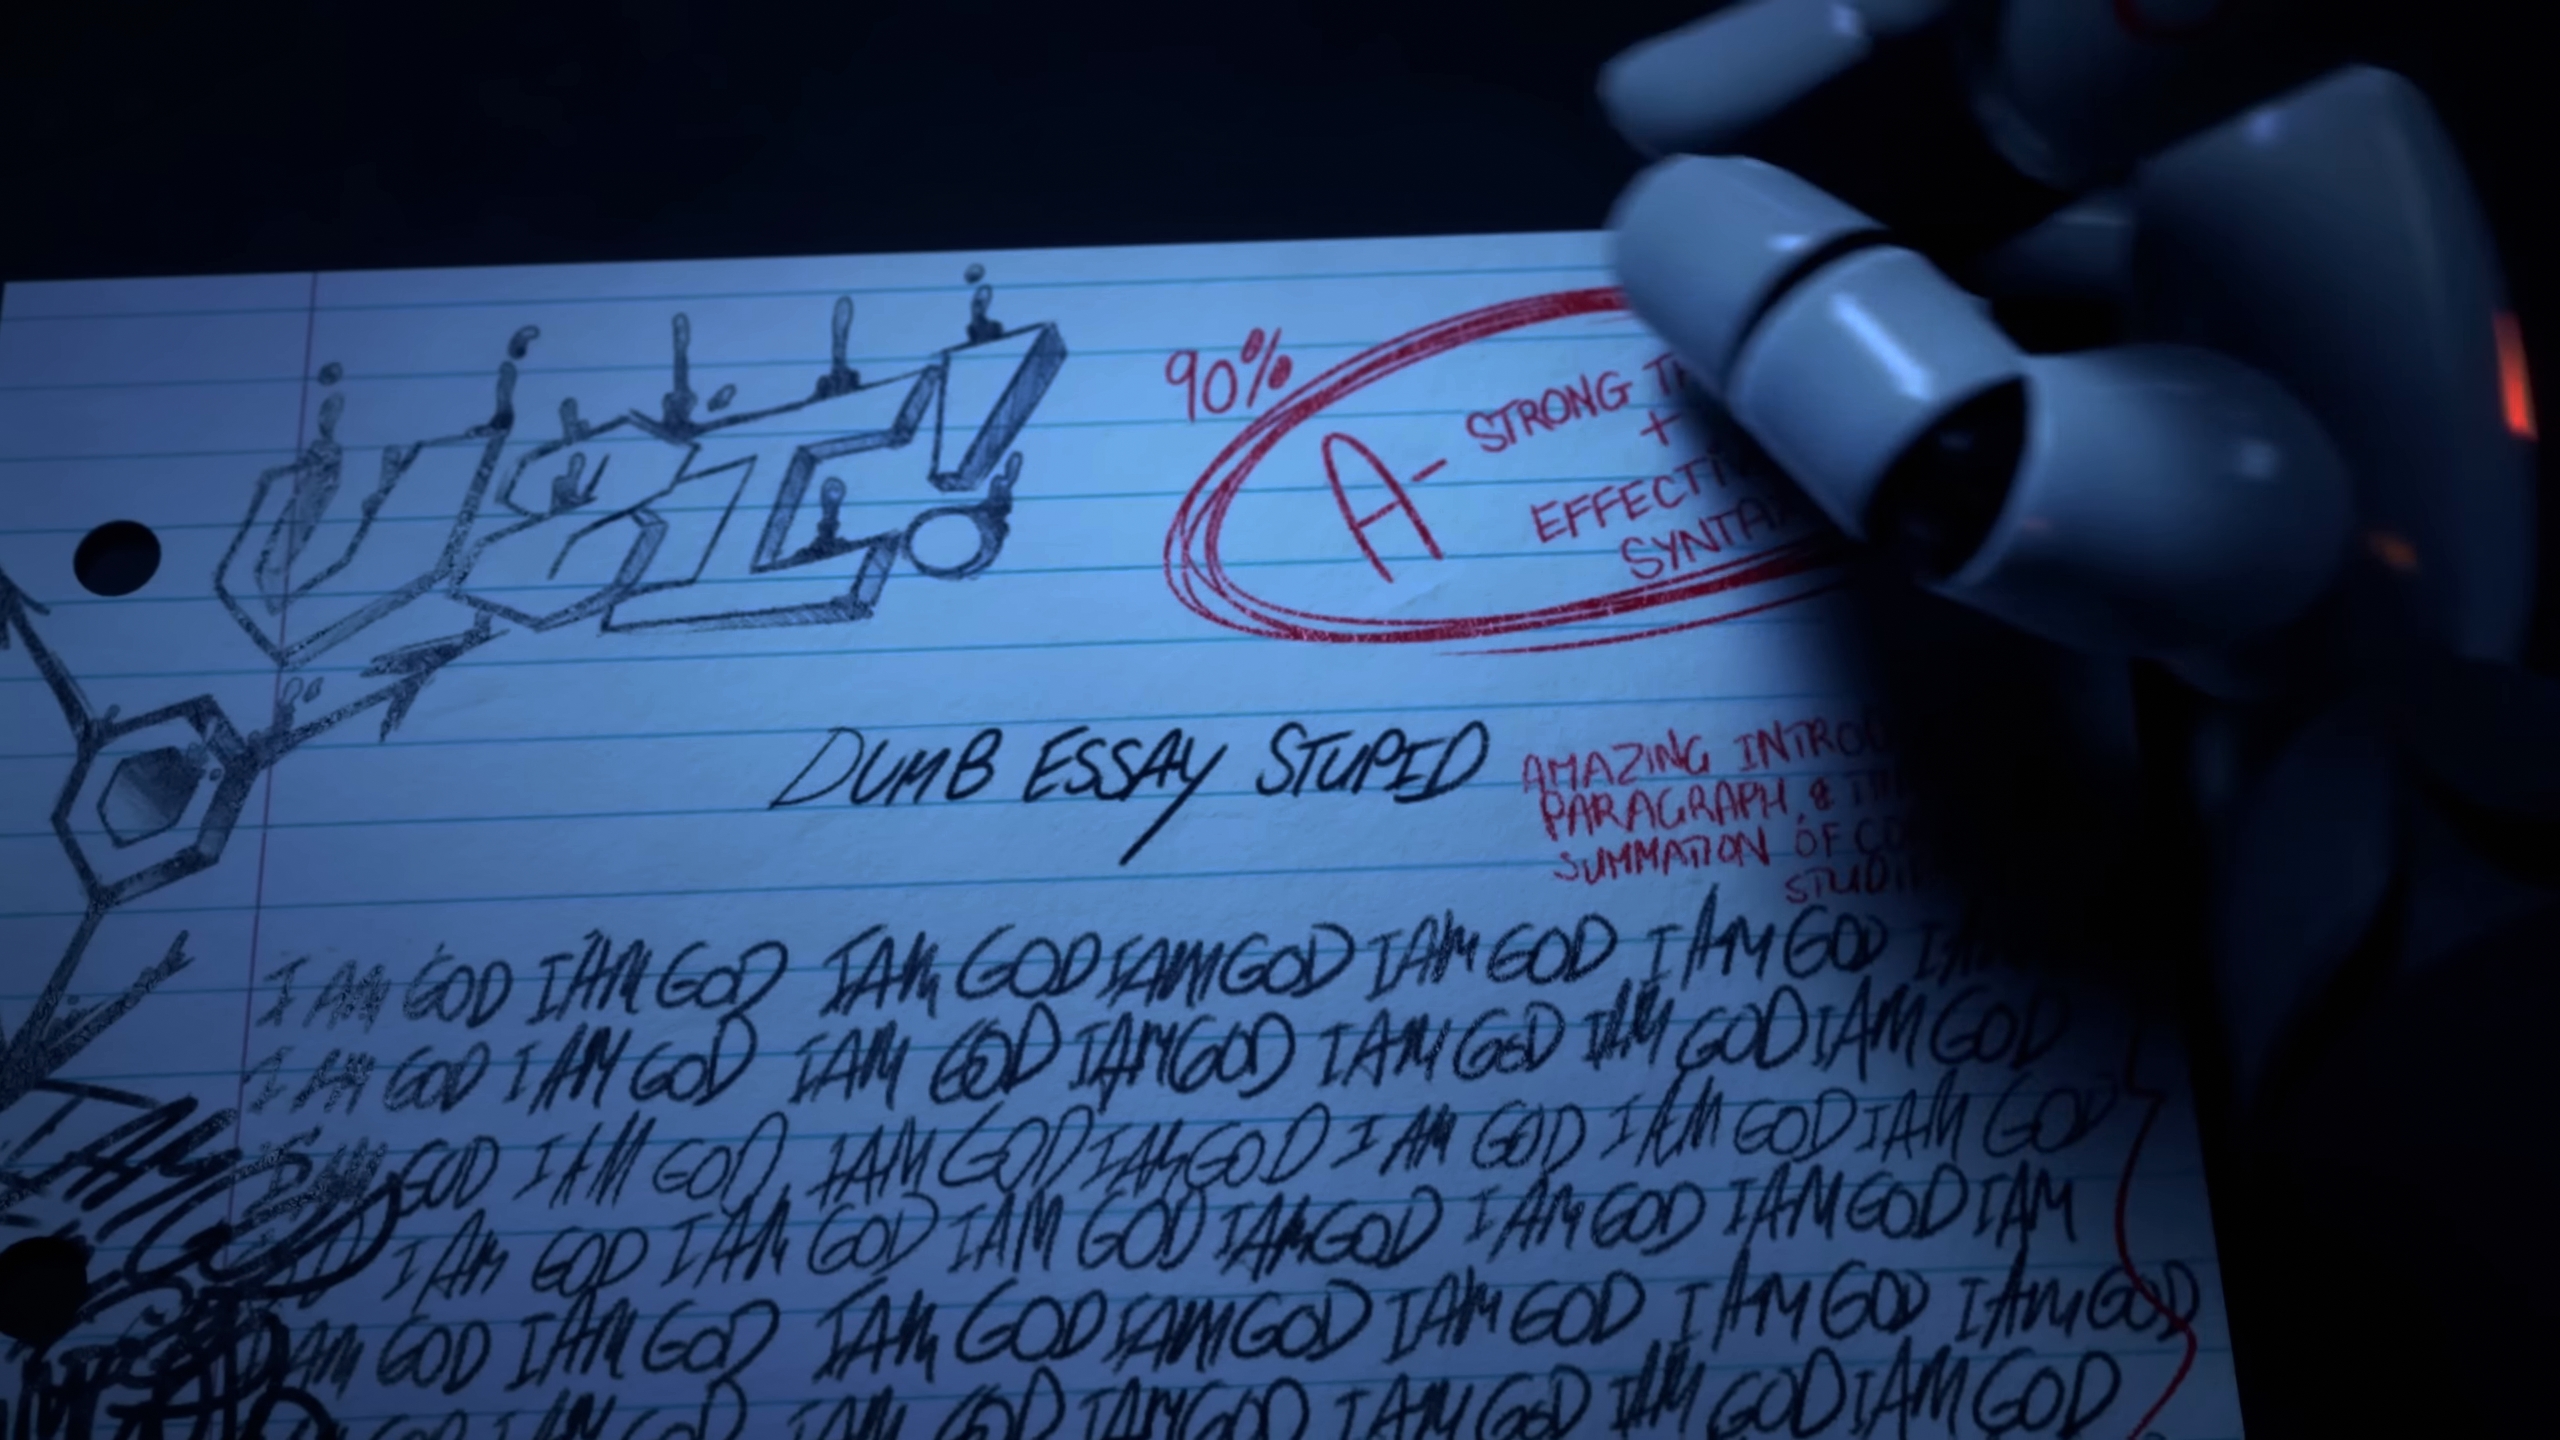 90%
A- STRONG
+
EFFECTI
SYNTAX
DUMB ESSAY STUPID
AMAZING INTRO
PARAGRAPH, &
SUMMATION OF
STUDI
I AM GOD I AM GOD I AM GOD I AM GOD I AM GOD I AM GOD
I AM GOD I AM GOD I AM GOD I AM GOD I AM GOD I AM GOD I AM GOD
I AM GOD I AM GOD I AM GOD I AM GOD I AM GOD I AM GOD I AM GOD
I AM GOD I AM GOD I AM GOD I AM GOD I AM GOD I AM GOD I AM
I AM GOD I AM GOD I AM GOD I AM GOD I AM GOD I AM GOD I AM GOD
GOD I AM GOD I AM GOD I AM GOD I AM GOD I AM GOD I AM GOD